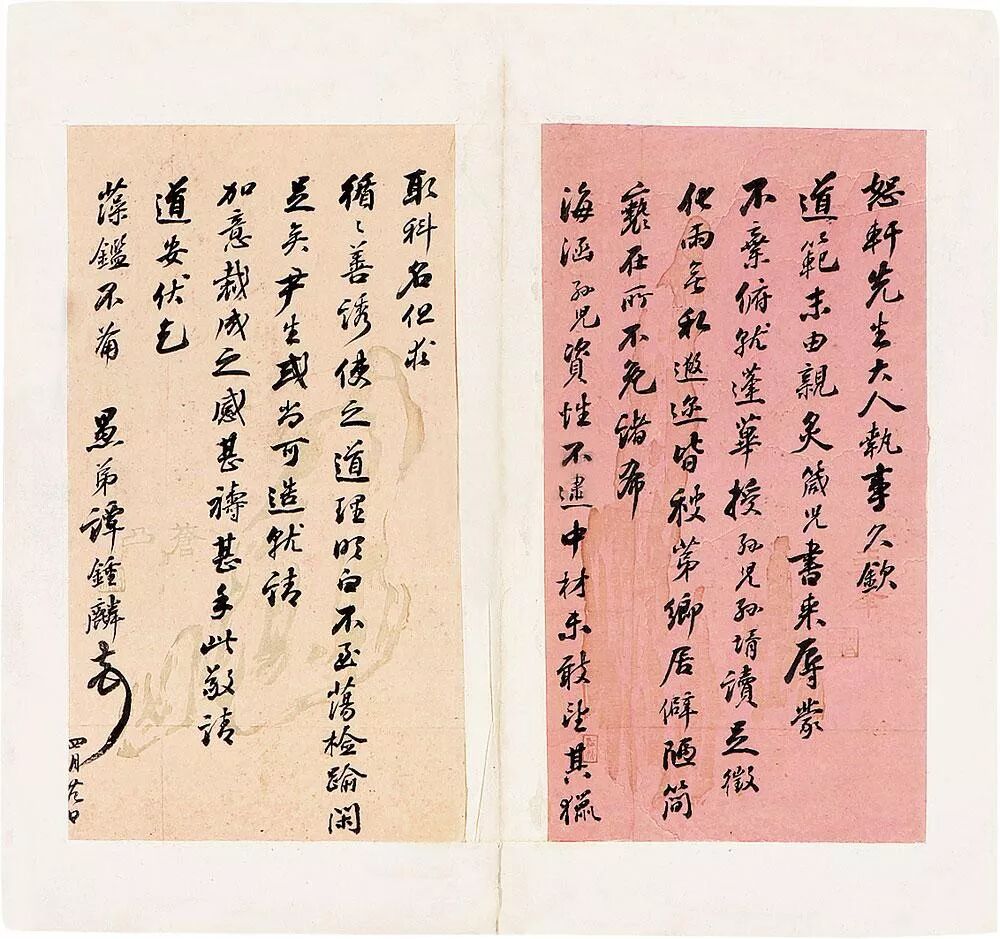 恕軒先生大人執事久欽
道範末由親炙箴兒書來辱蒙
不棄俯就蓬蓽授孫兒孫壻讀足徵
化雨無私遐邇皆被第鄉居僻陋簡
褻在所不免諸希
海涵孫兒資性不逮中材未敢望其獵
取科名但求
循〻善誘使之道理明白不至蕩檢踰閑
足矣尹生或尚可造就請
加意裁成之感甚禱甚手此敬請
道安伏乞
藻鑑不備 愚弟譚鍾麟
四月